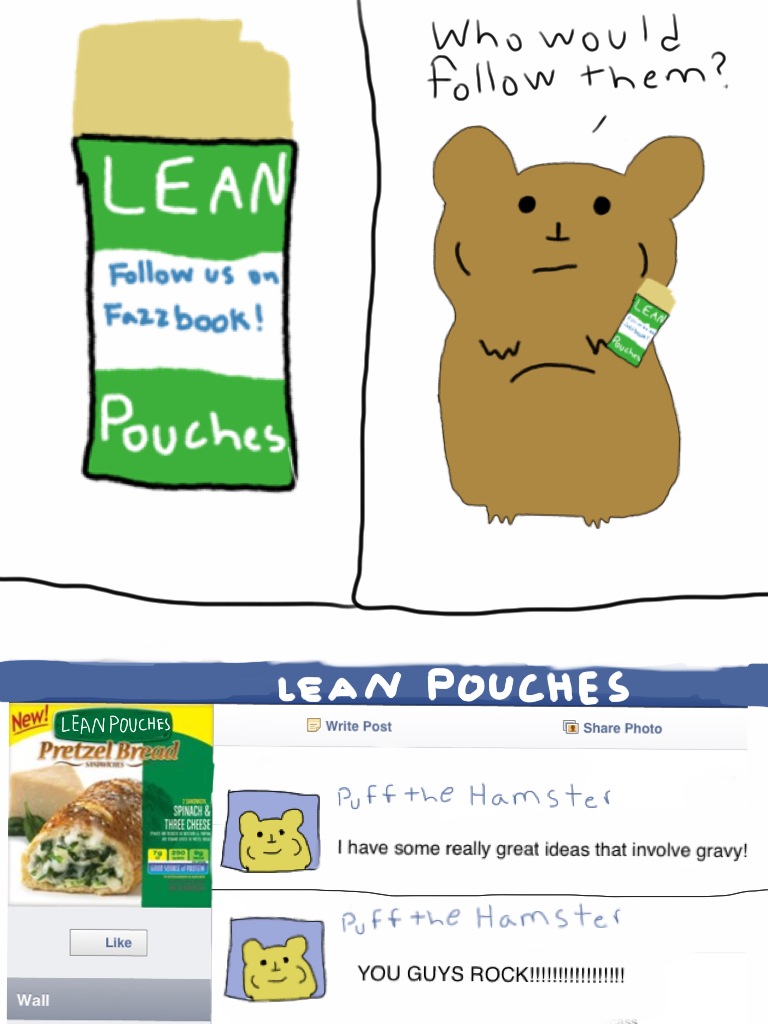 LEAN
Follow us on
Fazzbook!
Pouches
Who would
follow them?
LEAN
Pouches
LEAN POUCHES
New!
LEAN POUCHES
Pretzel Bread
SANDWICHES
SPINACH &
THREE CHEESE
GOOD SOURCE of PROTEIN
Like
Wall
Write Post
Share Photo
Puff the Hamster
I have some really great ideas that involve gravy!
Puff the Hamster
YOU GUYS ROCK!!!!!!!!!!!!!!!!!